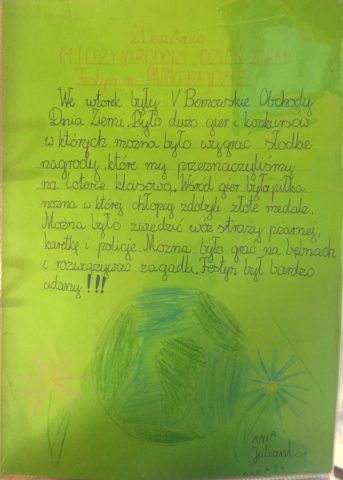 21 kwietnia
MIĘDZYNARODOWY DZIEŃ ZIEMI
Festyn w PARKERAJDZIE
We wtorek były V Bemowskie Obchody
Dnia Ziemi. Było dużo gier i konkursów
w których można było wygrać słodkie
nagrody, które my przeznaczyliśmy
na loterię klasową. Wśród gier była piłka
nożna w której chłopcy zdobyli złote medale.
Można było zwiedzić wóz strazy pżarnej,
karetkę i policję. Można było grać na bębnach
i rozwiązywać zagadki. Festyn był bardzo
udany!!!
ANIA